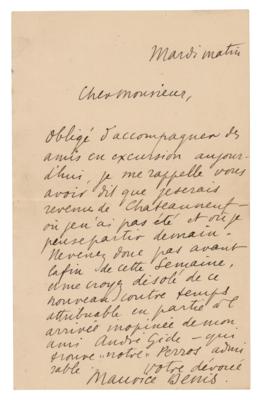 Mardi matin
Cher Monsieur,
Obligé d'accompagner des
amis en excursion aujour-
d'hui, je me rappelle vous
avoir dit que je serais
revenu de Chateauneuf -
où je n'ai pas été et où je
pense partir demain -
Ne venez donc pas avant
la fin de cette semaine,
et me croyez désolé de ce
nouveau contre temps
attribuable en partie à l'
arrivée inopinée de mon
ami André Gide - qui
trouve "notre" Perros admi
rable
votre dévoué
Maurice Denis.